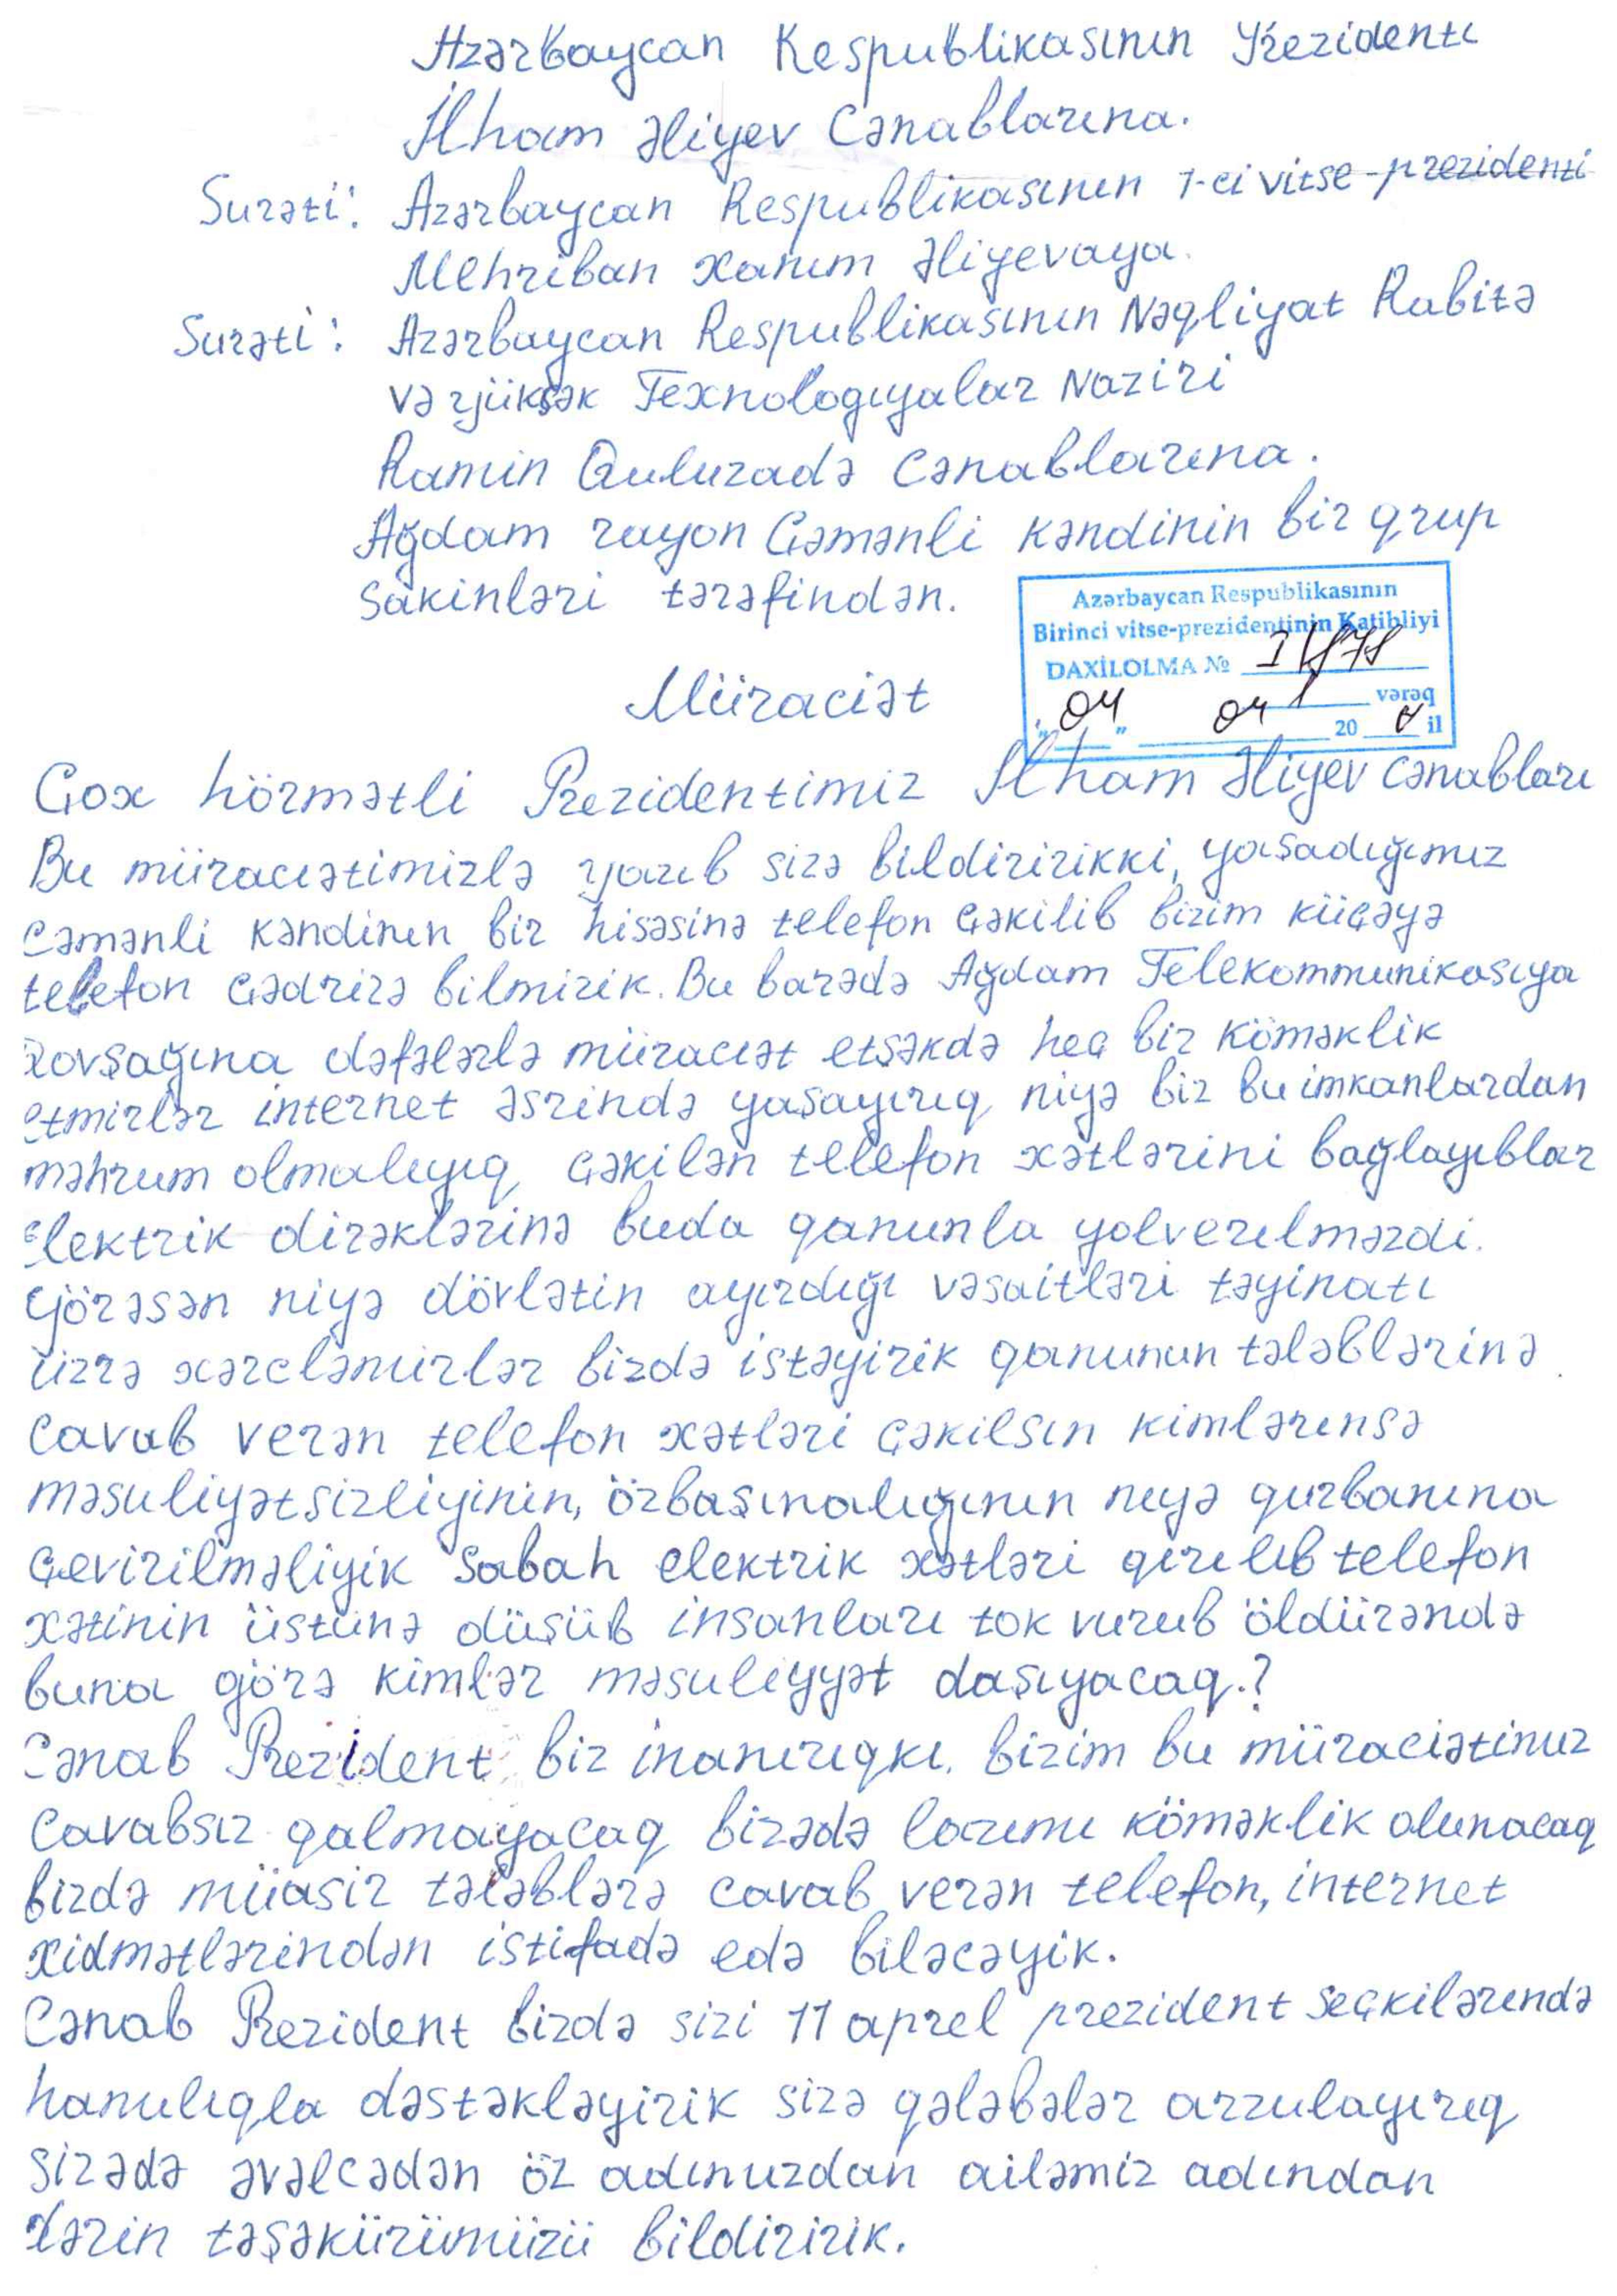 Azərbaycan Respublikasının Prezidenti
İlham Əliyev Cənablarına.
Surəti: Azərbaycan Respublikasının 1-ci vitse-prezidenti
Mehriban xanım Əliyevaya.
Surəti: Azərbaycan Respublikasının Nəqliyat Rabitə
və yüksək Texnologıyalar Naziri
Ramin Quluzadə Cənablarına.
Ağdam rayon Çəmənli kəndinin bir qrup
Sakinləri tərəfindən.
Azərbaycan Respublikasının
Birinci vitse-prezidentinin Katibliyi
DAXİLOLMA №
vərəq
"04" 04 20 il
Müraciət
Çox hörmətli Prezidentimiz İlham Əliyev cənabları
Bu müracıətimizlə yazıb sizə bildiririkki, yaşadığımız
Cəmənli kəndinın bir hisəsinə telefon çəkilib bizim küçəyə
telefon çədrizə bilmirik. Bu barədə Ağdam Telekommunikasıya
Qovşağına dəfələrlə müracıət etsəkdə heç bir köməklik
etmirlər internet əsrində yaşayırıq niyə biz bu imkanlardan
məhrum olmalıyıq, çəkilən telefon xətlərini bağlayıblar
Elektrik dirəklərinə buda qanunla yolverılməzdi.
Görəsən niyə dövlətin ayırdığı vəsaitləri təyinatı
üzrə xərcləmirlər bizdə istəyirik qanunun tələblərinə
Cavab verən telefon xətləri çəkilsın kimlərınsə
məsuliyətsizliyinin, özbaşınalığının nıyə qurbanına
çevirilməliyik Sabah elektrik xətləri qırılıb telefon
xətinin üstünə düşüb insanları tok vurub öldürəndə
buna görə kimlər məsulıyyət daşıyacaq.?
Cənab Prezident biz inanırıqkı, bizim bu müraciətimız
Cavabsız qalmayacaq bizədə lazımı köməklik olunacaq
bizdə müasir tələblərə cavab verən telefon, internet
xidmətlərindən istifadə edə biləcəyik.
Cənab Prezident bizdə sizi 11 aprel prezident seçkilərındə
hamılıqla dəstəkləyirik sizə qələbələr arzulayırıq
Sizədə əvəlcədən öz adımızdan ailəmiz adından
dərin təşəkürümüzü bildiririk.